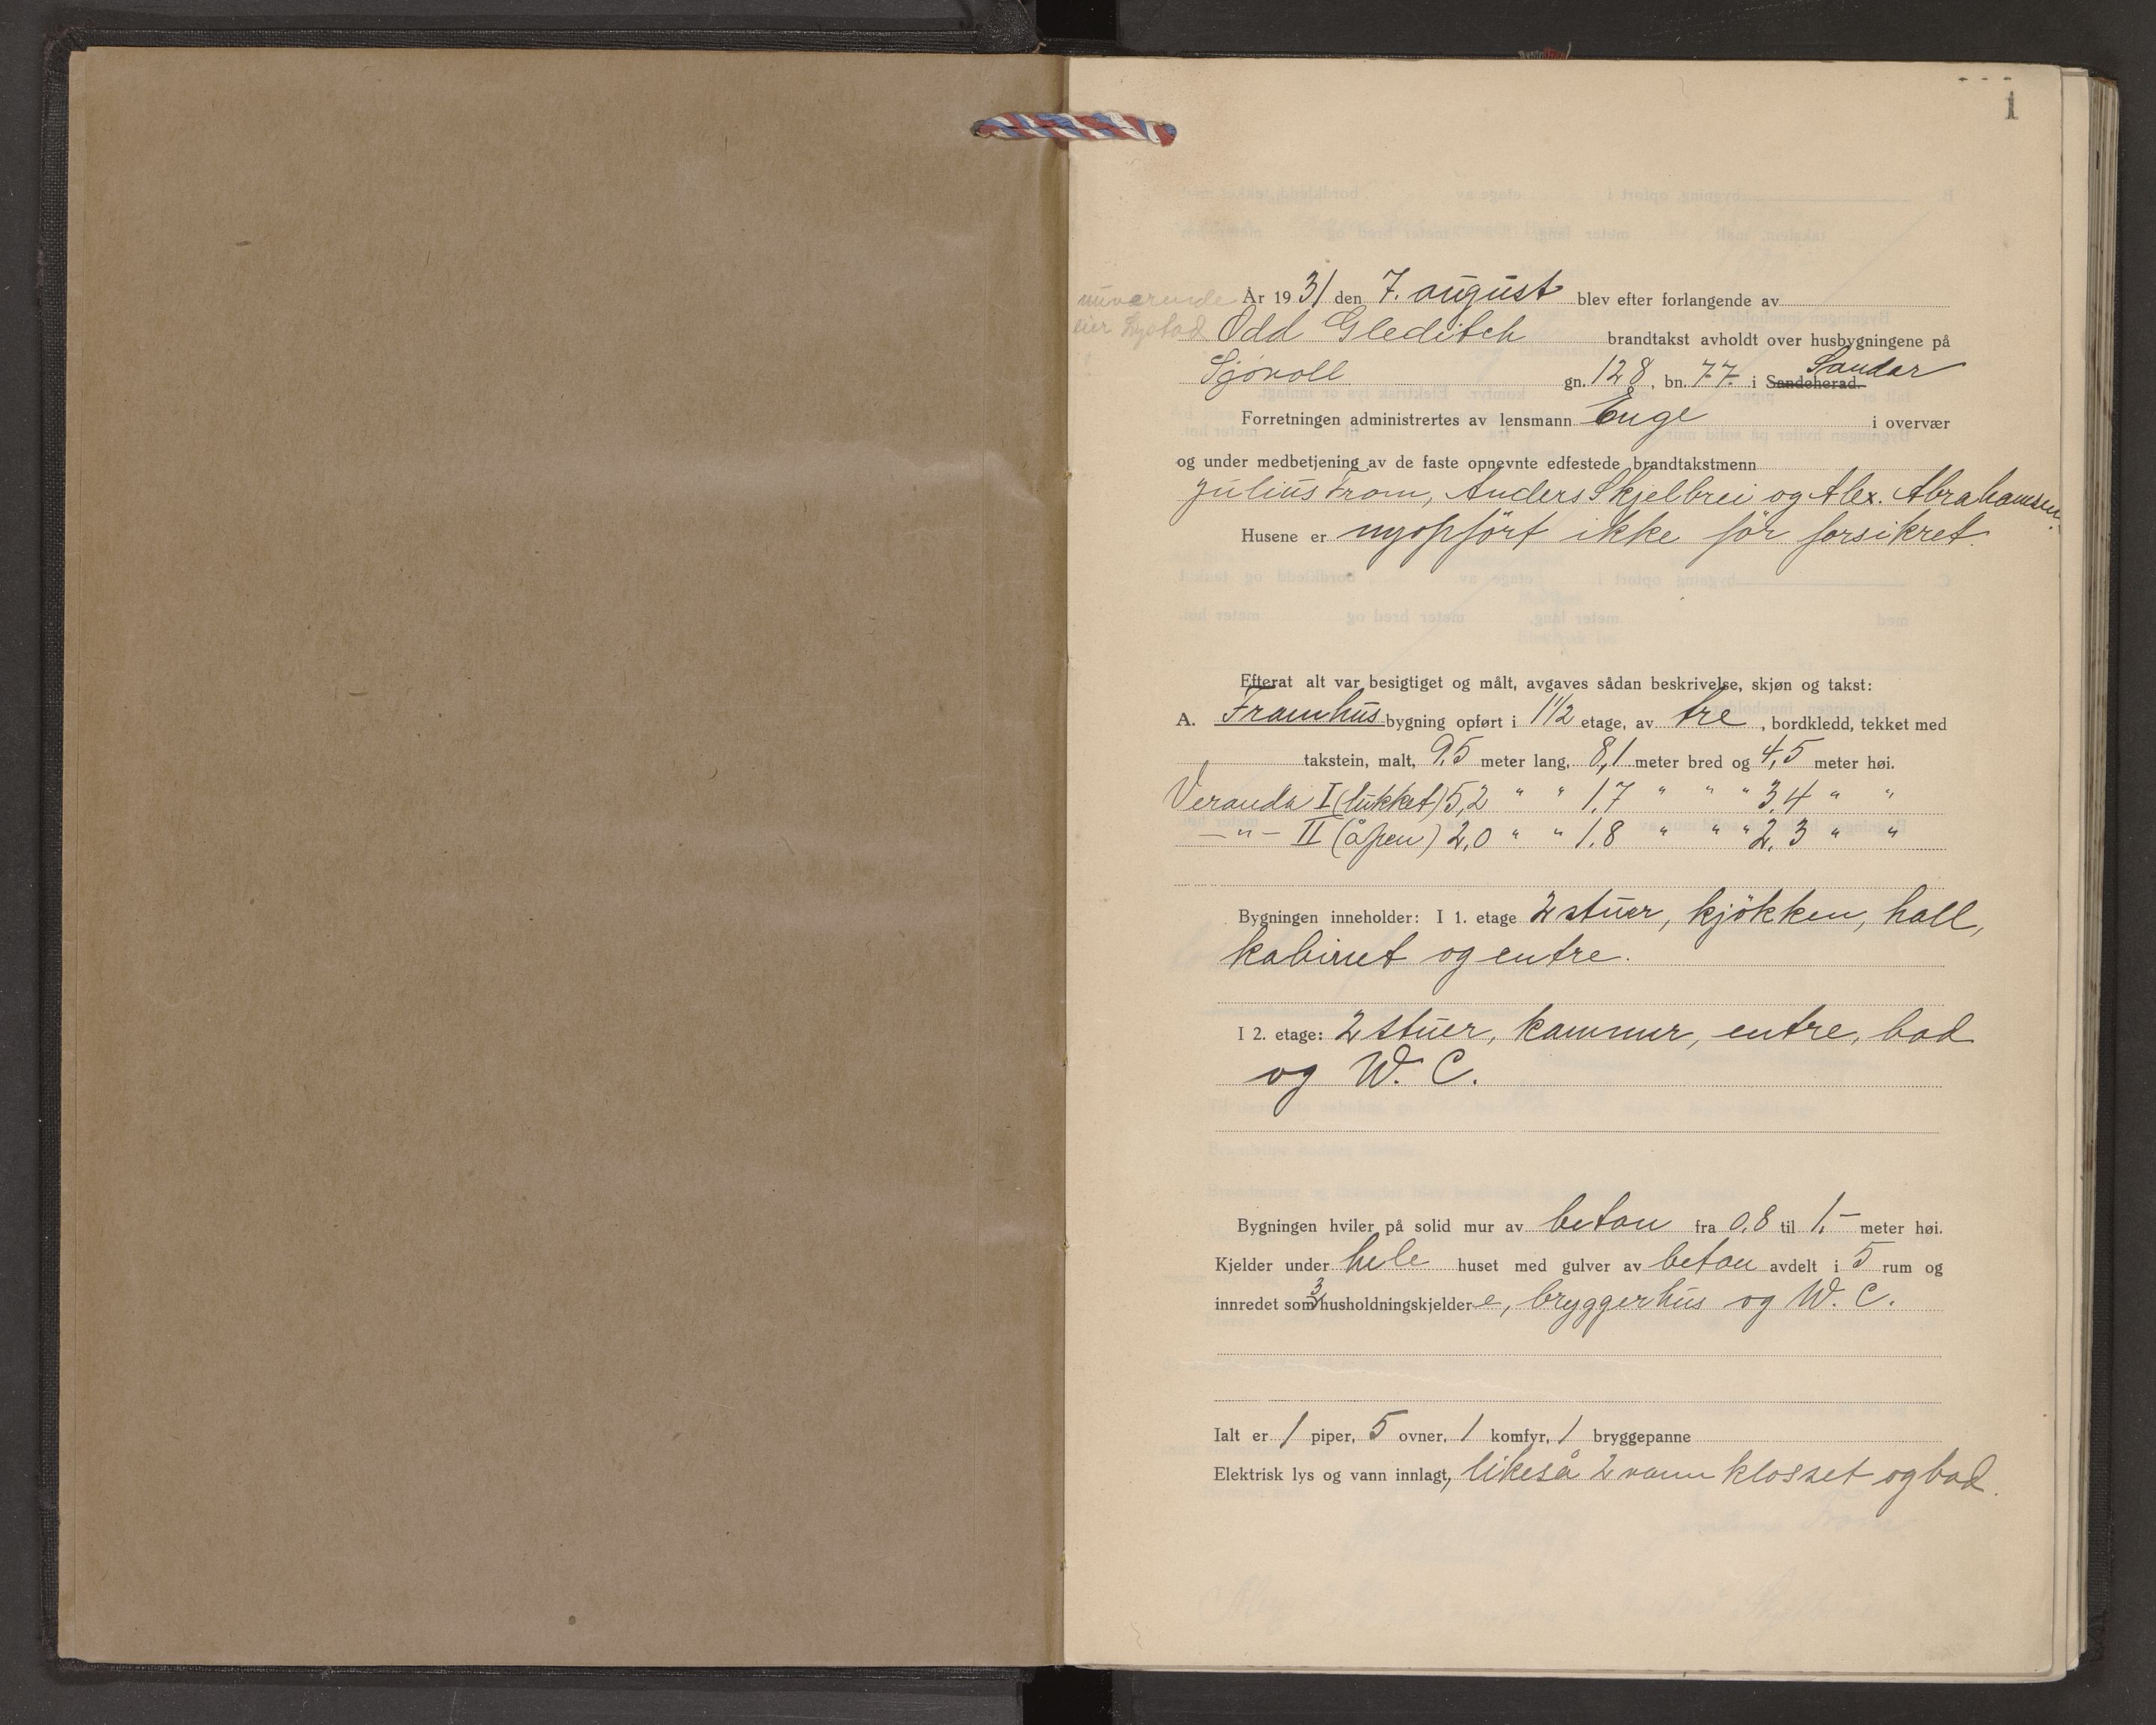 1
nuværende
eier Lystad
År 1931 den 7. august blev efter forlangende av
Odd Gleditch brandtakst avholdt over husbygningene på
Sjøvoll gn. 128, bn. 77. i Sandeherad. Sandar
Forretningen administrertes av lensmann Enge i overvær
og under medbetjening av de faste opnevnte edfestede brandtakstmenn
Julius From, Anders Skjelbrei og Alex. Abrahamsen.
Husene er nyopført ikke før forsikret.
Efterat alt var besigtiget og målt, avgaves sådan beskrivelse, skjøn og takst:
A. Framhus bygning opført i 1 1/2 etage, av tre, bordkledd, tekket med
takstein, malt, 9,5 meter lang, 8,1 meter bred og 4,5 meter høi.
Veranda I (lukket) 5,2 " " 1,7 " " " 3,4 " "
— " — II (åpen) 2,0 " " 1,8 " " " 2,3 " "
Bygningen inneholder: I 1. etage 2 stuer, kjökken, hall,
kabinet og entre.
I 2. etage: 2 stuer, kammer, entre, bad
og W. C.
Bygningen hviler på solid mur av beton fra 0,8 til 1,- meter høi.
Kjelder under hele huset med gulver av beton avdelt i 5 rum og
innredet som 3 husholdningskjeldere, bryggerhus og W. C.
Ialt er 1 piper, 5 ovner, 1 komfyr, 1 bryggepanne
Elektrisk lys og vann innlagt, likeså 2 vann klosset og bad.